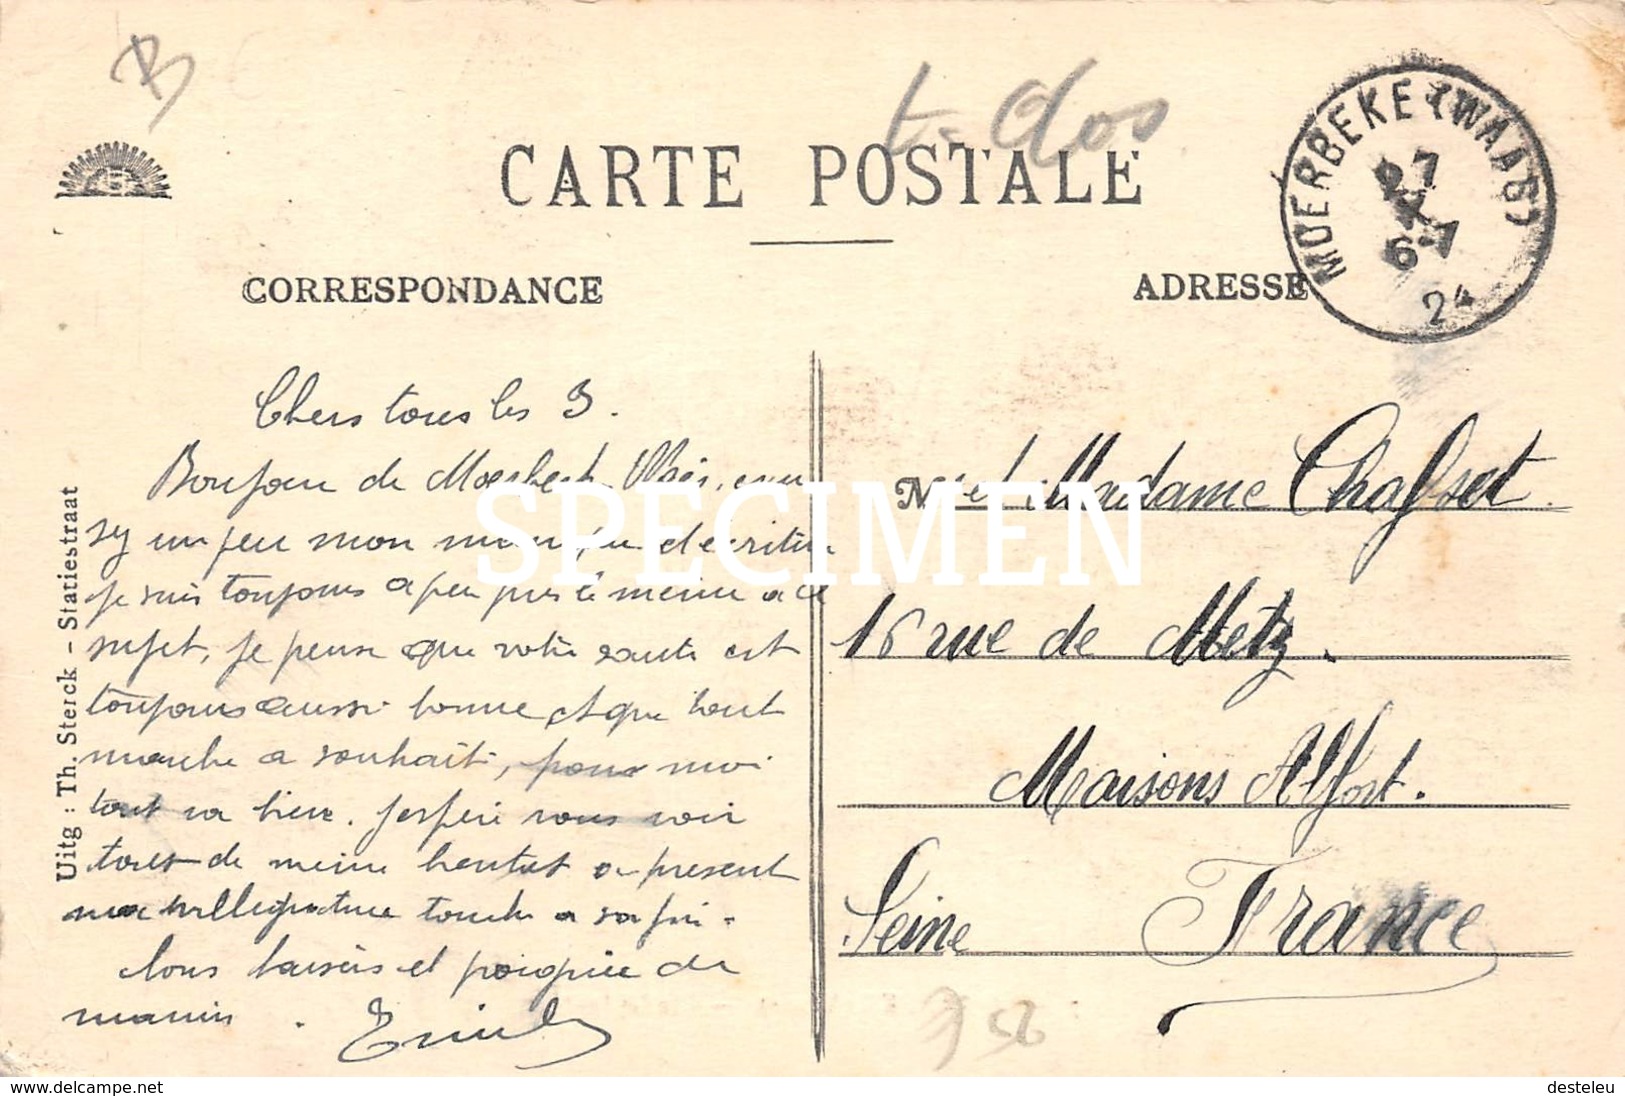 t. dos
CARTE POSTALE
MOERBEKE (WAAS)
27
X
6-7
24
CORRESPONDANCE
ADRESSE
Chers tous les 3.
Bonjour de Moerbeck
un peu mon
je suis toujours a peu pres le meme a ce
sujet, je pense que votre sante est
toujours aussi bonne et que tout
marche a souhait, pour moi
tout va bien. Jespère vous voir
tous de meme bientot a present
ma villegiature touche a sa fin.
bons baisers et poignée de
mains.
M et Madame
16 rue de Metz.
Maisons Alfort.
Seine France
Uitg : Th. Sterck - Statiestraat
SPECIMEN
www.delcampe.net
desteleu